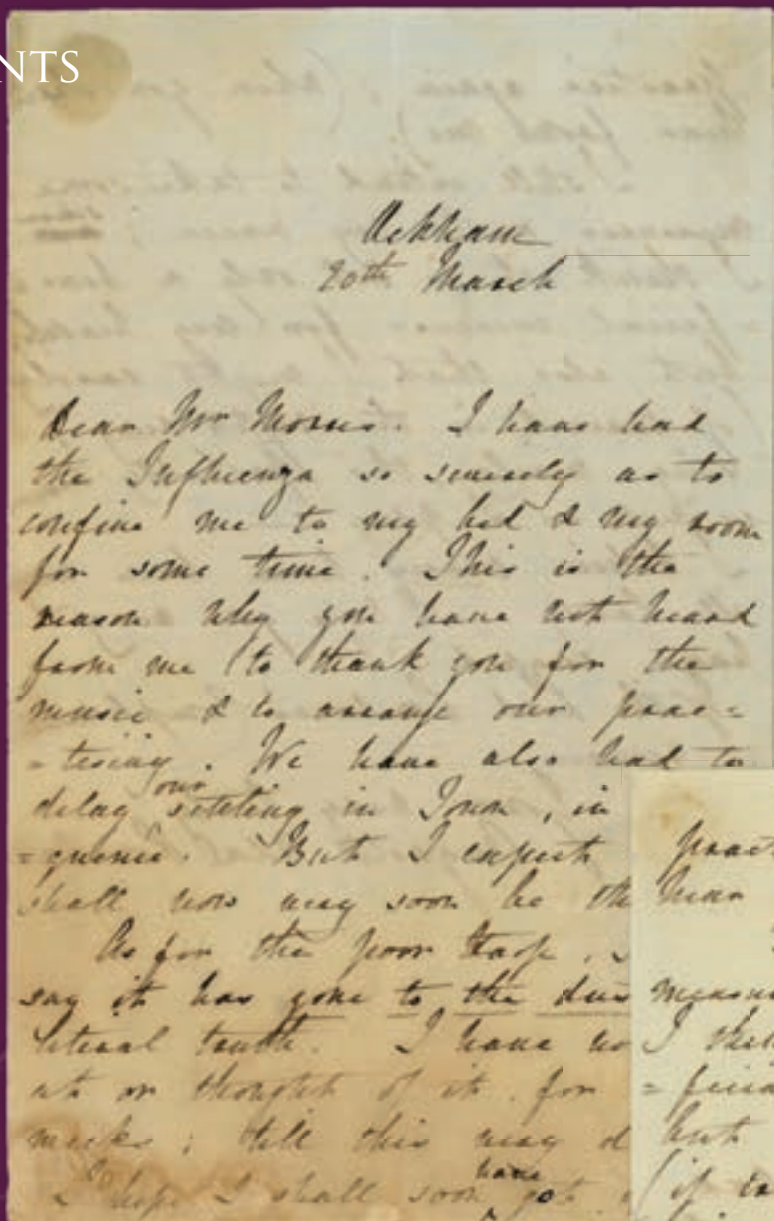 NTS
Ockham
20th March
Dear Mr Morris. I have had
the Influenza so severely as to
confine me to my bed & my room
for some time. This is the
reason why you have not heard
from me (to thank you for the
music & to arrange our prac=
=tising. We have also had to
delay our settling in Town, in
=quence. But I expect
shall now very soon be th
As for the poor Harp,
say it has gone to the
literal truth. I have no
at or thought of it for
weeks; till this very d
I hope I shall soon have got
prac
hear
measu
I thin
=ficia
but
(if